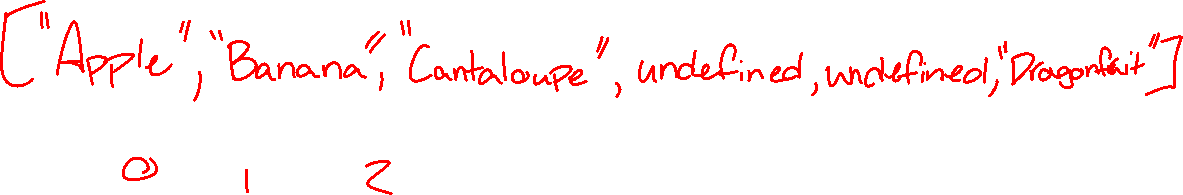 ["Apple", "Banana", "Cantaloupe", undefined, undefined, "Dragonfruit"]
0 1 2